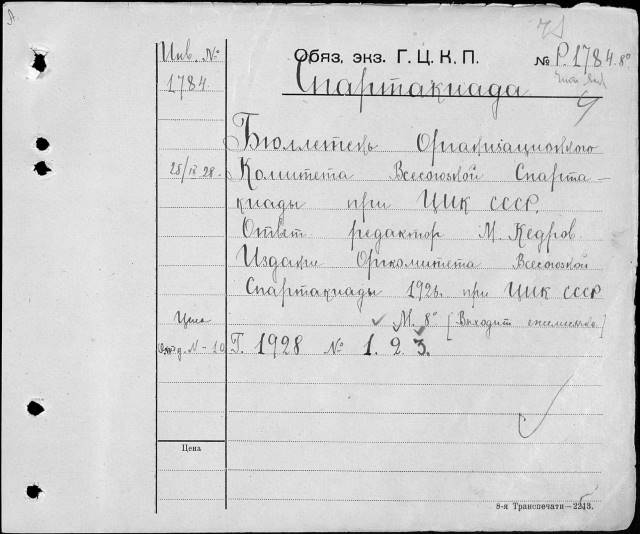 Инв. №
1784
Обяз. экз. Г. Ц. К. П.
№ Р. 1784. 8º
Спартакиада
Бюллетень Организационного
28/IV 28. Комитета Всесоюзной Спарта-
киады при ЦИК СССР.
Ответ редактор М. Кедров
Издание Оргкомитета Всесоюзной
Спартакиады 1928. при ЦИК СССР
Цена
М. 8º [Выходит ежемесячно]
№ - 10
Г. 1928 № 1. 2. 3.
Цена
8-я Транспечати—2213.